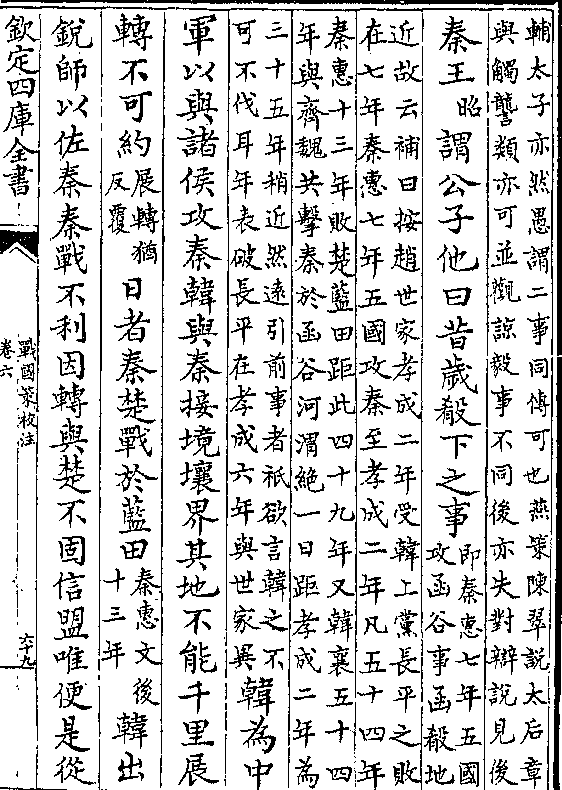 輔太子亦然愚謂二事同傳可也燕策陳翠說太后章
與觸讋類亦可並觀諒毅事不同後亦失對辯說見後
秦王昭謂公子他曰昔歲殽下之事即秦惠七年五國攻函谷事函殽地
近故云補曰按趙世家孝成二年受韓上黨長平之敗
在七年秦惠七年五國攻秦至孝成二年凡五十四年
秦惠十三年敗楚藍田距此四十九年又韓襄五十四
年與齊魏共擊秦於函谷河渭絶一日距孝成二年為
三十五年稍近然逺引前事者祇欲言韓之不
可不伐耳年表破長平在孝成六年與世家異韓為中
軍以與諸侯攻秦韓與秦接境壤界其地不能千里展
轉不可約展轉猶反覆日者秦楚戰於藍田秦惠文後十三年韓出
銳師以佐秦秦戰不利因轉與楚不固信盟唯便是從
欽定四庫全書
戰國策校注
卷六
六十九